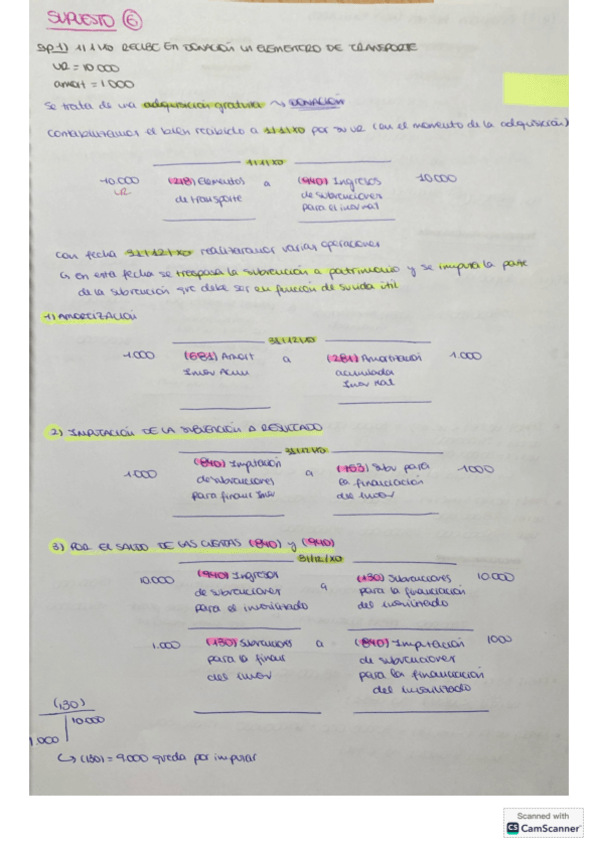 SUPUESTO 6
Sp1) 1/1/X0 RECIBE EN DONACIÓN UN ELEMENTRO DE TRANSPORTE
VR = 10000
amort = 1000
Se trata de una adquisición gratuita ~> DONACIÓN
Contabilizamos el bien recibido a 1/1/X0 por su VR (en el momento de la adquisición)
1/1/X0
10.000 (218) Elementos a (940) Ingresos 10000
VR de transporte de subvenciones
para el inmmat
Con fecha 31/12/X0 realizaremos varias operaciones
↳ en esta fecha se traspasa la subvención a patrimonio y se imputa la parte
de la subvención que debe ser en función de su vida útil
1) AMORTIZACIÓN
31/12/X0
1.000 (681) Amort a (281) Amortización 1.000
Inmov acumulada
Inmov mat
2) IMPUTACIÓN DE LA SUBVENCIÓN A RESULTADO
31/12/X0
1000 (840) Imputación a Subv para 1000
de subvenciones la financiación
para financ Inm del inmov
3) POR EL SALDO DE LAS CUENTAS (840) y (940)
31/12/X0
10.000 (940) Ingresos a (130) Subvenciones 10000
de subvenciones para la financiación
para el inmovilizado del inmovilizado
1.000 (130) Subvenciones a (840) Imputación 1000
para la financ de subvenciones
del inmov para la financiación
del inmovilizado
(130)
10000
1.000
↳ (130) = 9000 queda por imputar
Scanned with
CS CamScanner